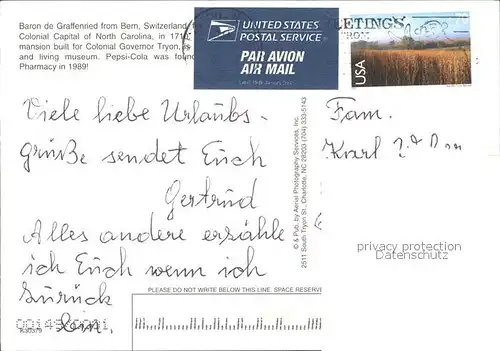 Baron de Graffenried from Bern, Switzerland,
Colonial Capital of North Carolina, in 1710
mansion built for Colonial Governor Tryon, is
and living museum. Pepsi-Cola was
Pharmacy in 1989!
UNITED STATES
POSTAL SERVICE
PAR AVION
AIR MAIL
USA
Viele liebe Urlaubs-
grüße sendet Euch
Gertrud
Alles andere erzähle
ich Euch wenn ich
zurück
bin.
Fam.
Karl
© & Pub. by Aerial Photography Services, Inc.
2511 South Tryon St., Charlotte, NC 28203 (704) 333-5143
privacy protection
Datenschutz
PLEASE DO NOT WRITE BELOW THIS LINE. SPACE RESERVE
K30379